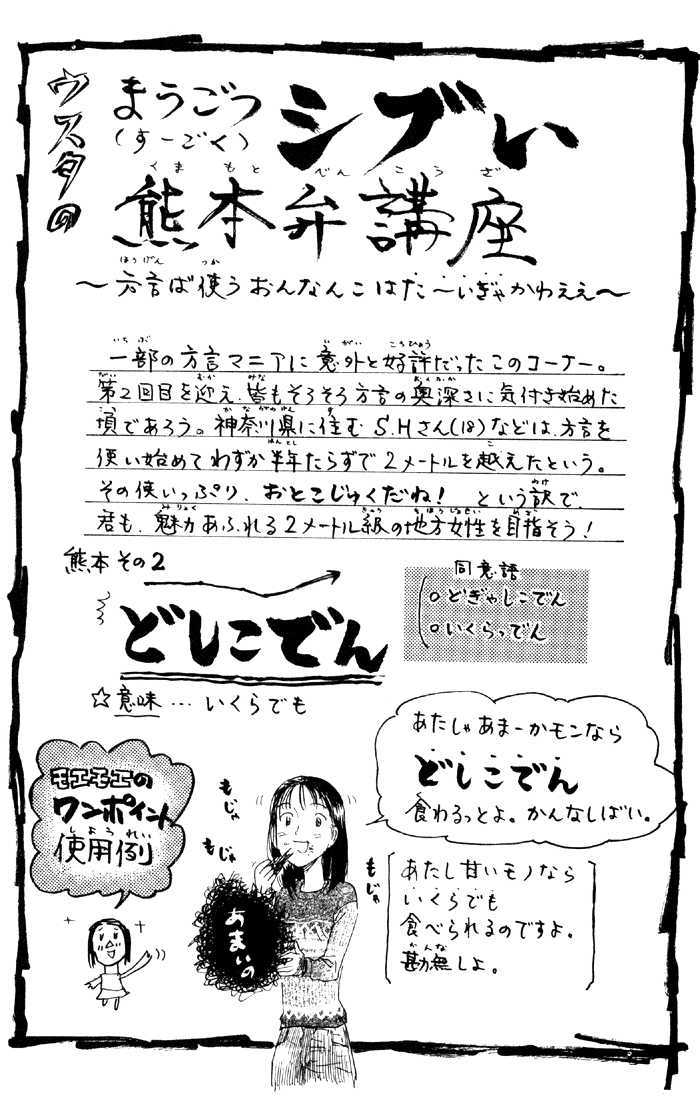 ウスタの
まうごつ
(すーごく)
シブい
くまもとべんこうざ
熊本弁講座
ほうげん つか
〜方言ば使うおんなんこはた〜いぎゃかわええ〜
一部の方言マニアに意外と好評だったこのコーナー。
第2回目を迎え、皆もそろそろ方言の奥深さに気付き始めた
頃であろう。神奈川県に住むS.Hさん(18)などは、方言を
使い始めてわずか半年たらずで2メートルを越えたという。
その使いっぷり、おとこじゅくだね! という訳で、
君も、魅力あふれる2メートル級の地方女性を目指そう!
熊本その2
どしこでん
同意語
○どぎゃしこでん
○いくらっでん
☆意味…いくらでも
モエモエの
ワンポイント
しようれい
使用例
あたしゃあまーかモンなら
どしこでん
食わるっとよ。かんなしばい。
あたし甘いモノなら
いくらでも
食べられるのですよ。
かんな
勘無しよ。
もじゃ
もじゃ
もじゃ
あまいの